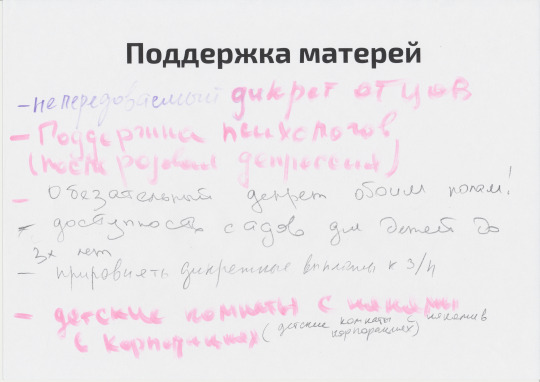 Поддержка матерей
- непередоваемый дикрет отцов
- Поддержка психологов
(после родовая депрессия)
- Обязательный декрет обоим полам!
- доступность садов для детей до
3х лет
- прировнять дикретные выплаты к З/П
- детские комнаты с нянями
в корпорациях (детские комнаты с нянями в
корпорациях)